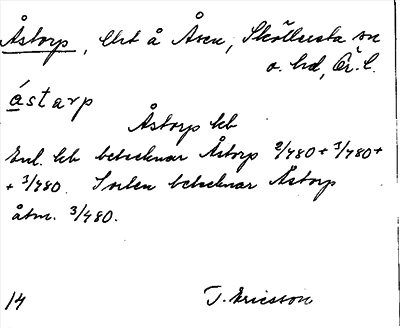 Åstorp, Chrt å Åsen, Sköllersta sn
o. hd, Ör. l.
ástarp
Åstorp kb
Enl. kb betecknar Åstorp 2/480 + 1/480 +
+ 3/480. Sorlen betecknar Åstorp
åtm. 3/480.
14 T. Ericsson